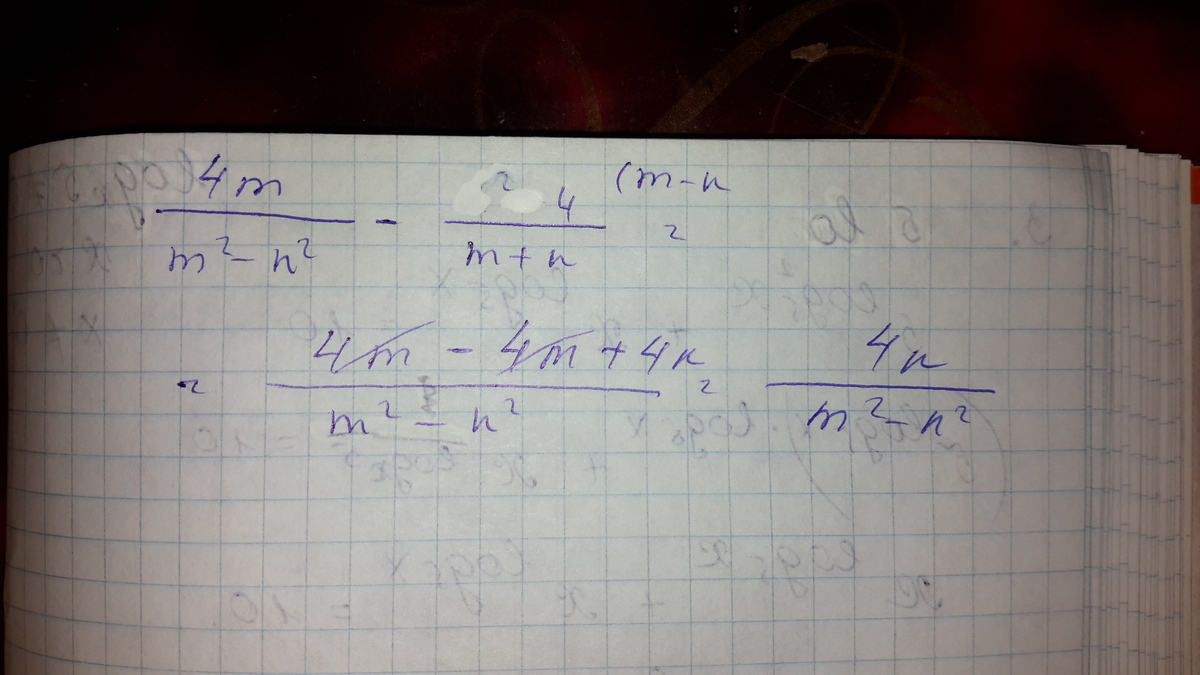 4m / (m² - n²) - 4 / (m + n) (m - n =
= (4m - 4m + 4n) / (m² - n²) = 4n / (m² - n²)